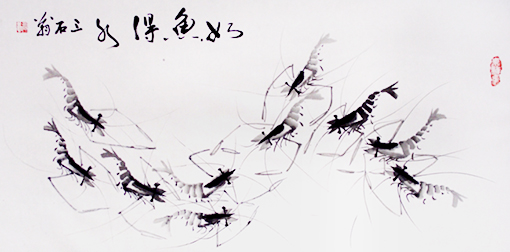 如魚得水 三石翁